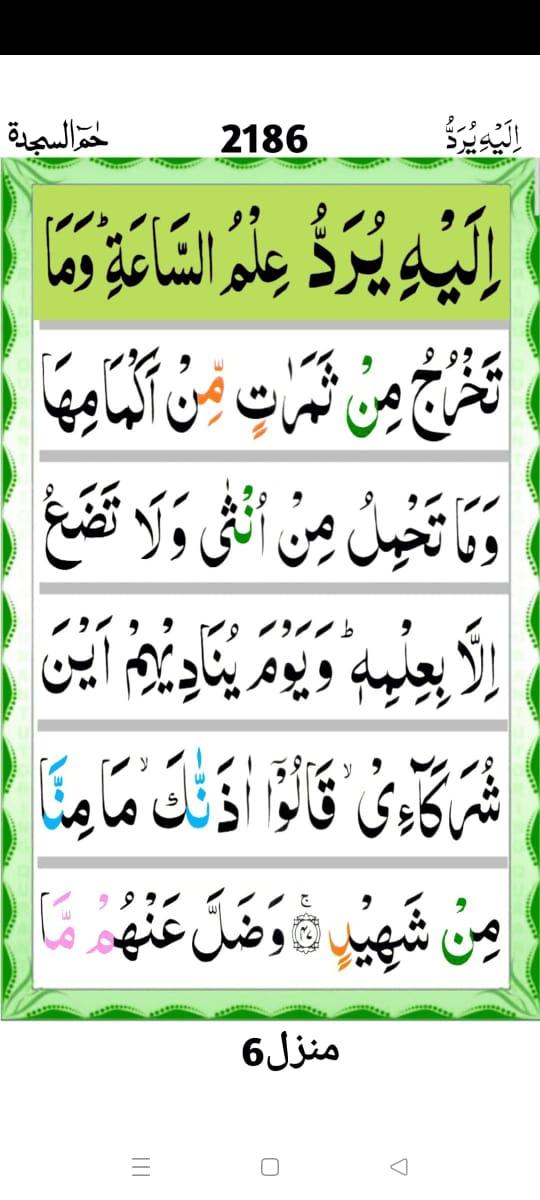 اِلَيْهِ يُرَدُّ 2186 حٰمٓ السجدة
اِلَيْهِ يُرَدُّ عِلْمُ السَّاعَةِ ؕ وَمَا
تَخْرُجُ مِنْ ثَمَرٰتٍ مِّنْ اَكْمَامِهَا
وَمَا تَحْمِلُ مِنْ اُنْثٰى وَلَا تَضَعُ
اِلَّا بِعِلْمِهٖ ؕ وَيَوْمَ يُنَادِيْهِمْ اَيْنَ
شُرَكَآءِىْ ۙ قَالُوْۤا اٰذَنّٰكَ ۙ مَا مِنَّا
مِنْ شَهِيْدٍ ۚ ﴿۴۷﴾ وَضَلَّ عَنْهُمْ مَّا
منزل6